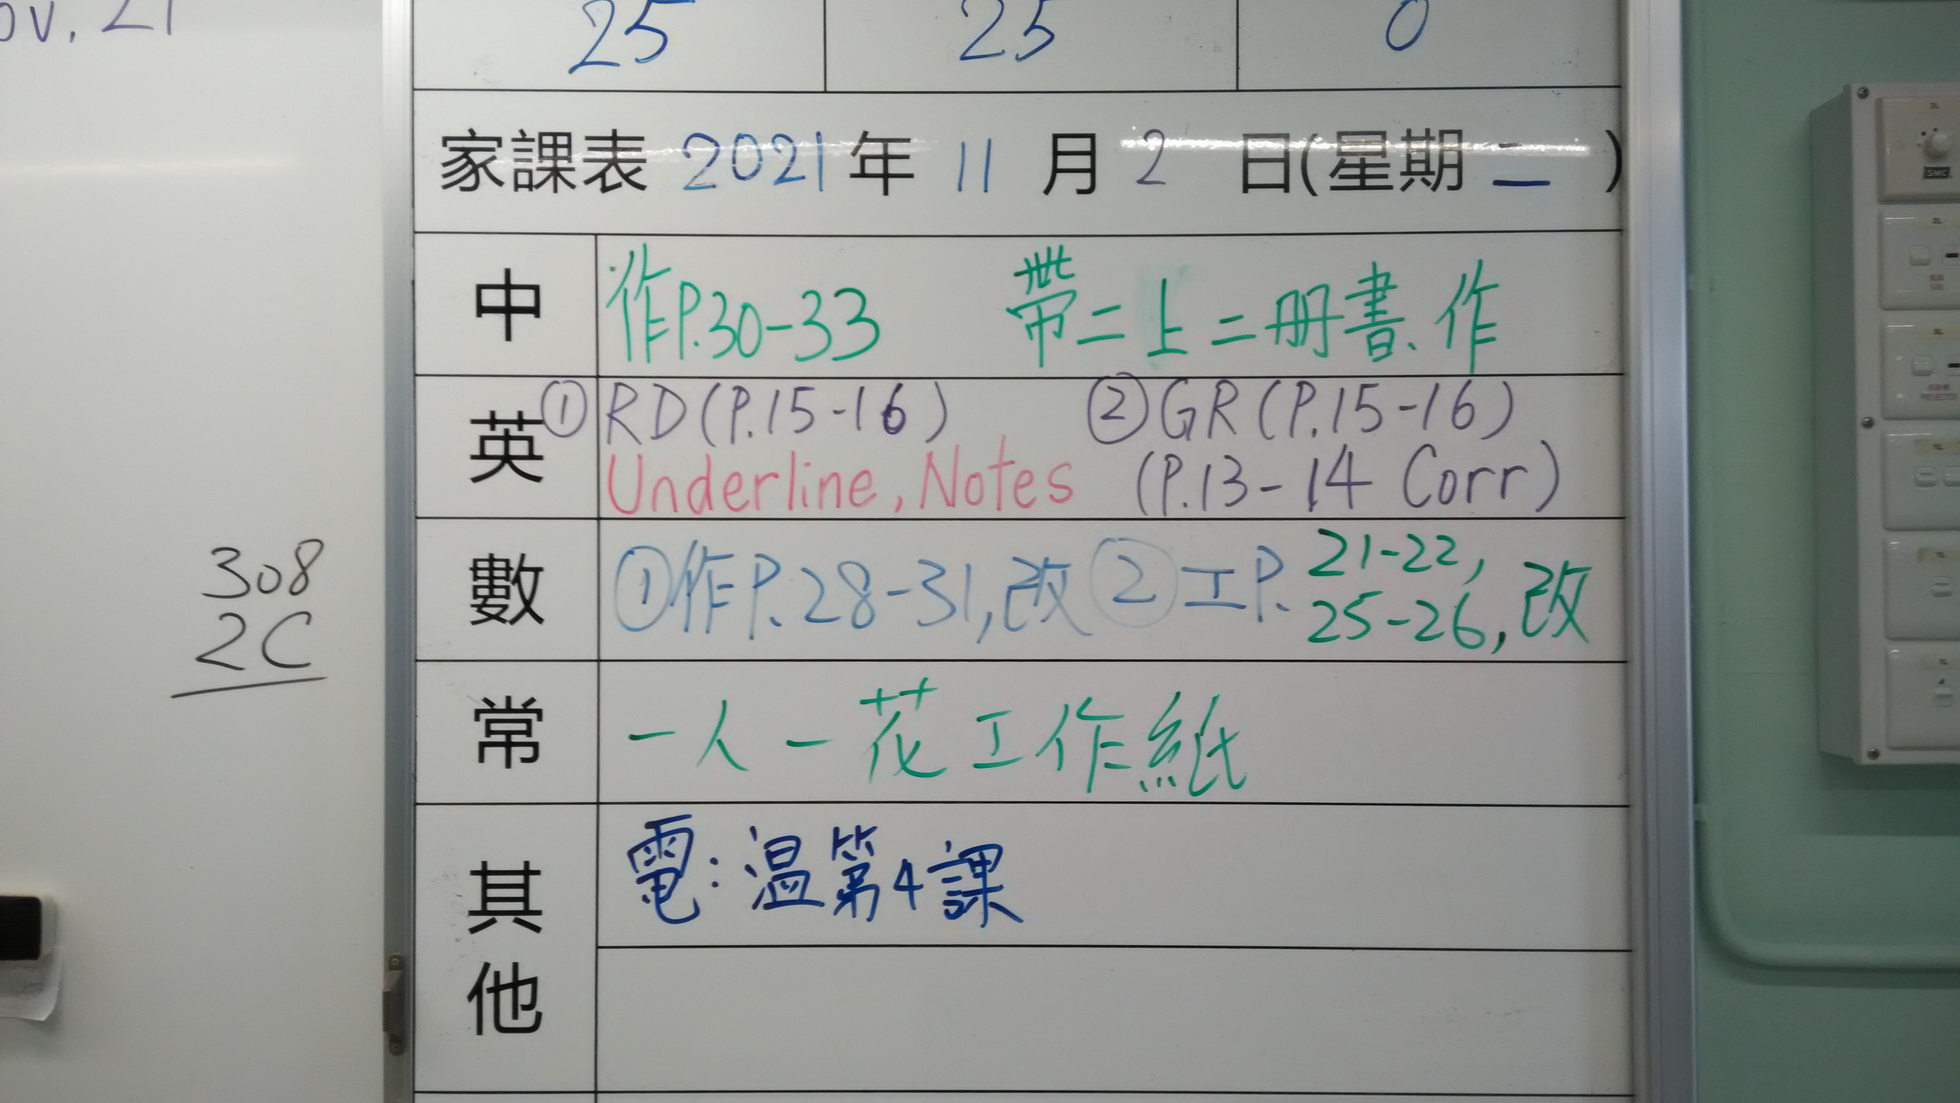 25 25 0
家課表 2021年 11 月 2 日(星期 二 )
中 作P.30-33 帶二上二冊書、作
英 ① RD(P.15-16) ② GR(P.15-16)
Underline, Notes (P.13-14 Corr)
數 ①作P.28-31,改 ②工P. 21-22,
25-26,改
常 一人一花工作紙
其他 電:温第4課
308
2C